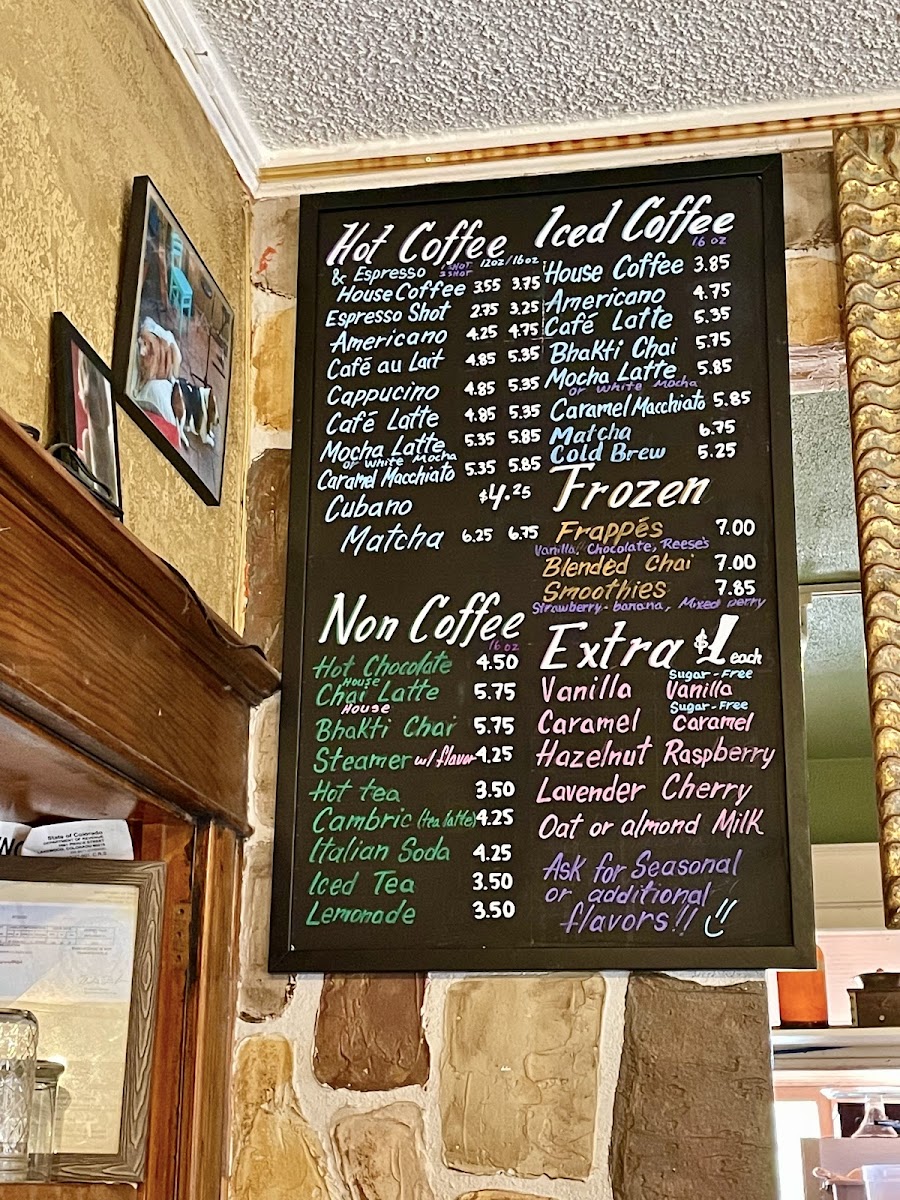 Hot Coffee
& Espresso 12oz/16oz
House Coffee 3.55 3.75
Espresso Shot 2.75 3.25
Americano 4.25 4.75
Café au Lait 4.85 5.35
Cappucino 4.85 5.35
Café Latte 4.85 5.35
Mocha Latte 5.35 5.85
or White Mocha
Caramel Macchiato 5.35 5.85
Cubano $4.25
Matcha 6.25 6.75
Non Coffee
16 oz
Hot Chocolate 4.50
House
Chai Latte 5.75
House
Bhakti Chai 5.75
Steamer w/ flavor 4.25
Hot tea 3.50
Cambric (tea latte) 4.25
Italian Soda 4.25
Iced Tea 3.50
Lemonade 3.50
Iced Coffee
16 oz
House Coffee 3.85
Americano 4.75
Café Latte 5.35
Bhakti Chai 5.75
Mocha Latte 5.85
or White Mocha
Caramel Macchiato 5.85
Matcha 6.75
Cold Brew 5.25
Frozen
Frappés 7.00
Vanilla, Chocolate, Reese's
Blended Chai 7.00
Smoothies 7.85
Strawberry-banana, Mixed berry
Extra $1 each
Vanilla Sugar-Free Vanilla
Caramel Sugar-Free Caramel
Hazelnut Raspberry
Lavender Cherry
Oat or almond Milk
Ask for Seasonal
or additional
flavors!!
State of Colorado
DEPARTMENT OF REVENUE